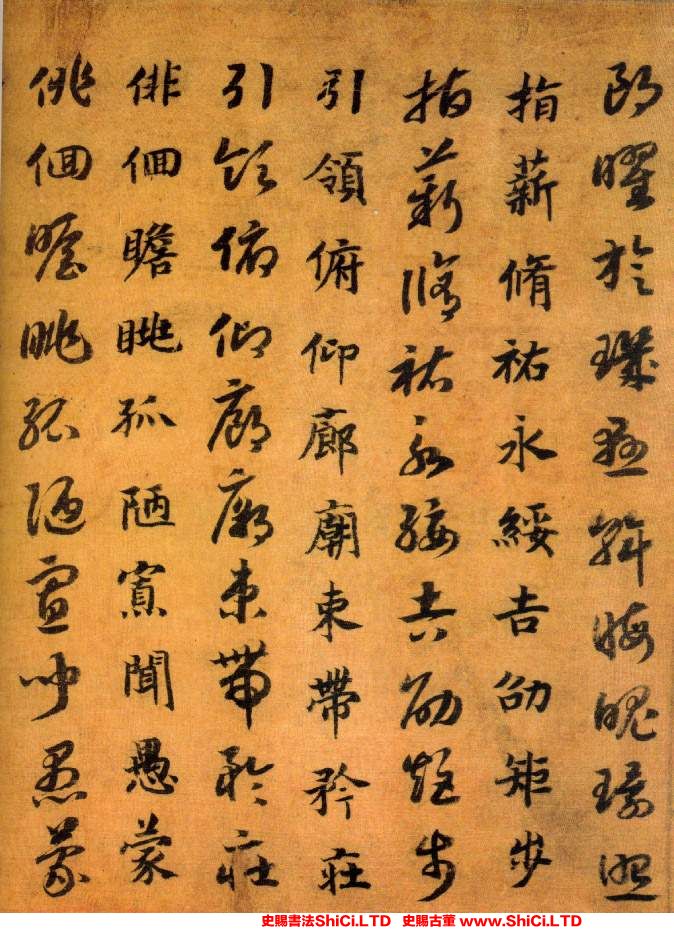 朗曜於璣懸斡晦魄環照
指薪脩祐永綏吉劭矩步
指薪脩祐永綏吉劭矩步
引領俯仰廊廟束帶矜莊
引領俯仰廊廟束帶矜莊
俳佪瞻眺孤陋寡聞愚蒙
俳佪瞻眺孤陋寡聞愚蒙
史賜書法ShiCi.LTD 史賜古董 www.ShiCi.LTD